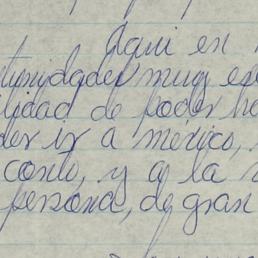 Aqui en
tunidades muy es
ilidad de poder h
der ir a mexico,
corto, y a la
persona, de gran